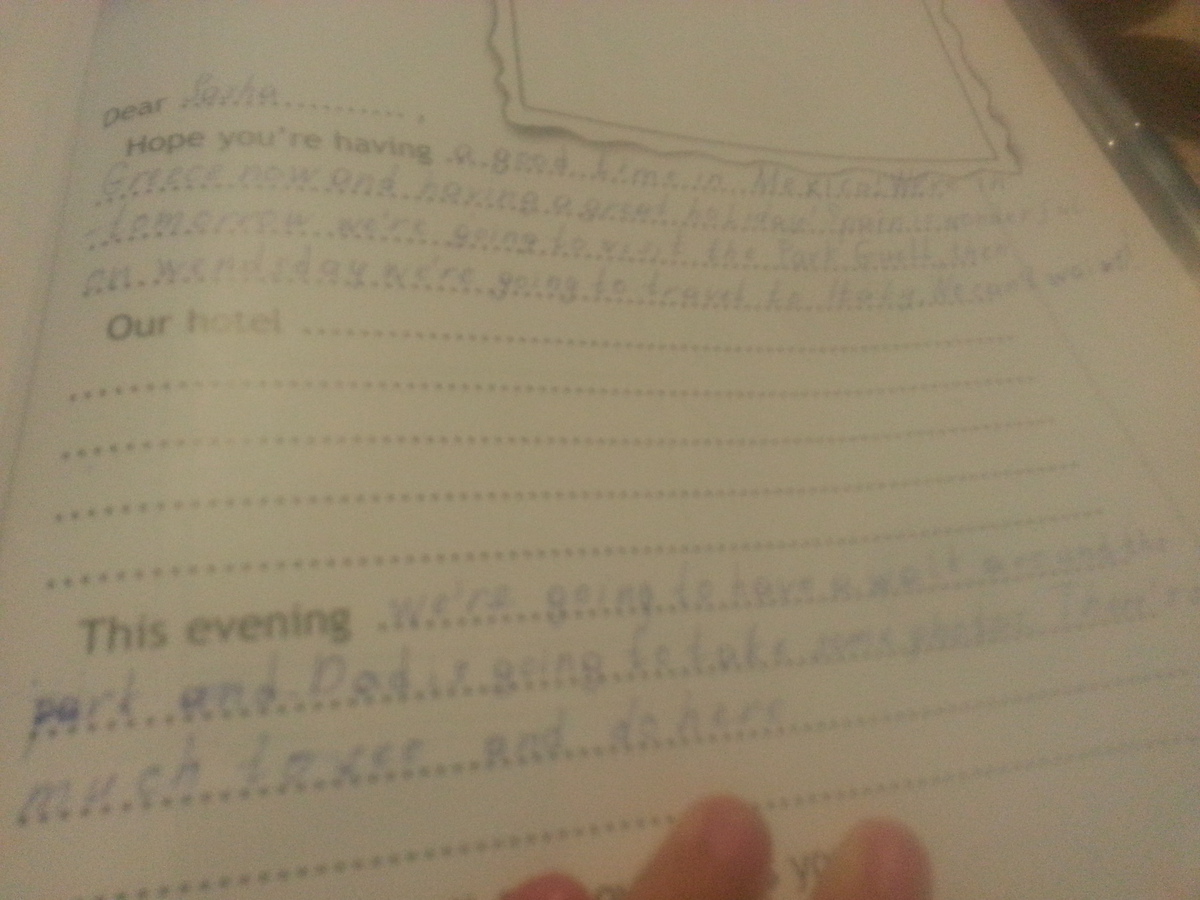 Dear Sasha ,
Hope you're having a good time in Mexico! We're in
Greece now and having a great holiday! Spain is wonderful
tomorrow we're going to visit the Park Guell then
on wendsday we're going to travel to Italy. We can't wait!
Our hotel
This evening we're going to have a walk around the
port and Dad is going to take some photos. There's so
much to see and do here